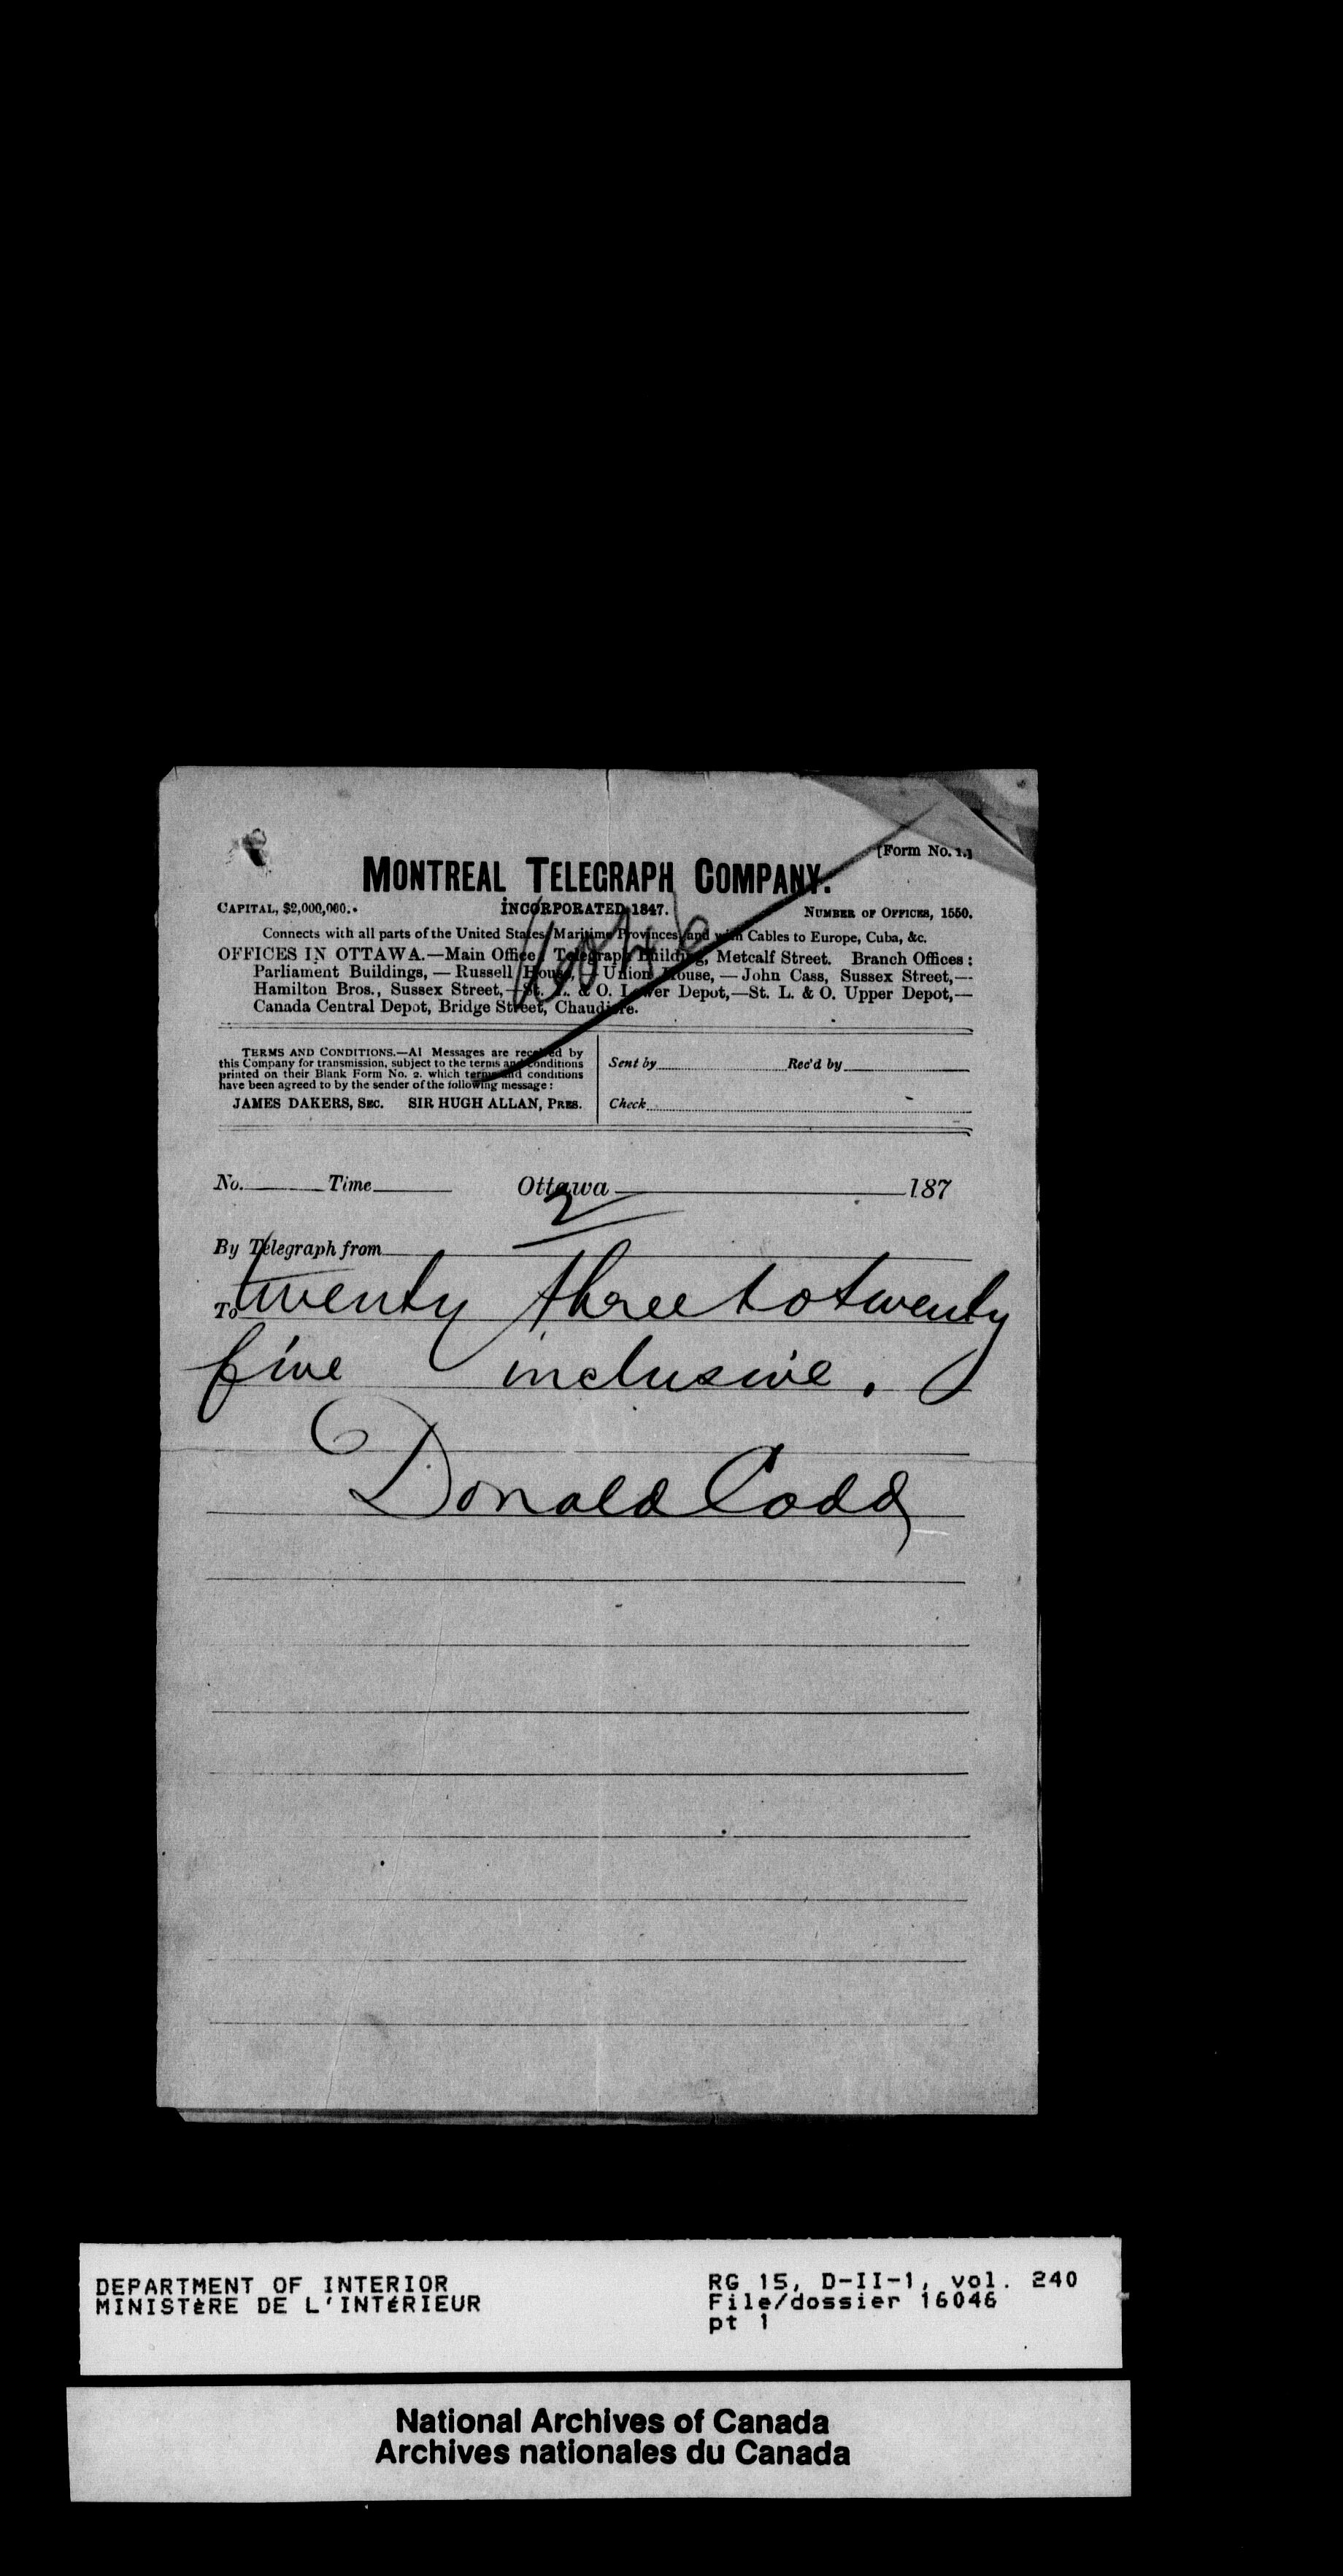 [Form No. 1.]
MONTREAL TELEGRAPH COMPANY.
CAPITAL, $2,000,000.
INCORPORATED 1847.
NUMBER OF OFFICES, 1550.
Connects with all parts of the United States, Maritime Provinces, and with Cables to Europe, Cuba, &c.
OFFICES IN OTTAWA.—Main Office, Telegraph Building, Metcalf Street. Branch Offices:
Parliament Buildings, — Russell House, — Union House, — John Cass, Sussex Street,—
Hamilton Bros., Sussex Street,—St. L. & O. Lower Depot,—St. L. & O. Upper Depot,—
Canada Central Depot, Bridge Street, Chaudiere.
TERMS AND CONDITIONS.—Al Messages are received by
this Company for transmission, subject to the terms and conditions
printed on their Blank Form No. 2. which terms and conditions
have been agreed to by the sender of the following message:
JAMES DAKERS, SEC. SIR HUGH ALLAN, PRES.
Sent by Rec'd by
Check
No. Time Ottawa 187
2
By Telegraph from
To twenty three to twenty
five inclusive.
Donald Codd
DEPARTMENT OF INTERIOR
MINISTÈRE DE L'INTÉRIEUR
RG 15, D-II-1, vol. 240
File/dossier 16046
pt 1
National Archives of Canada
Archives nationales du Canada